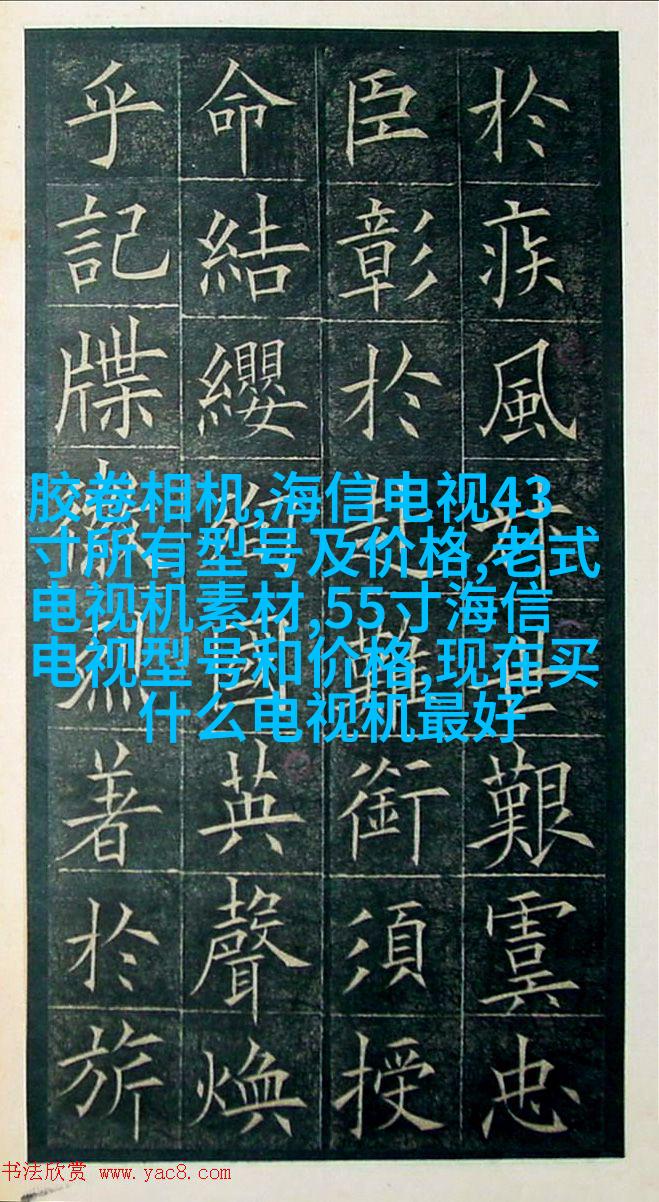 於疾風艱虞忠
臣彰於難銜須授
命結纓國英聲煥
乎記牒著於旂
胶卷相机,海信电视43
寸所有型号及价格,老式
电视机素材,55寸海信
电视型号和价格,现在买
什么电视机最好
书法欣赏 www.yac8.com